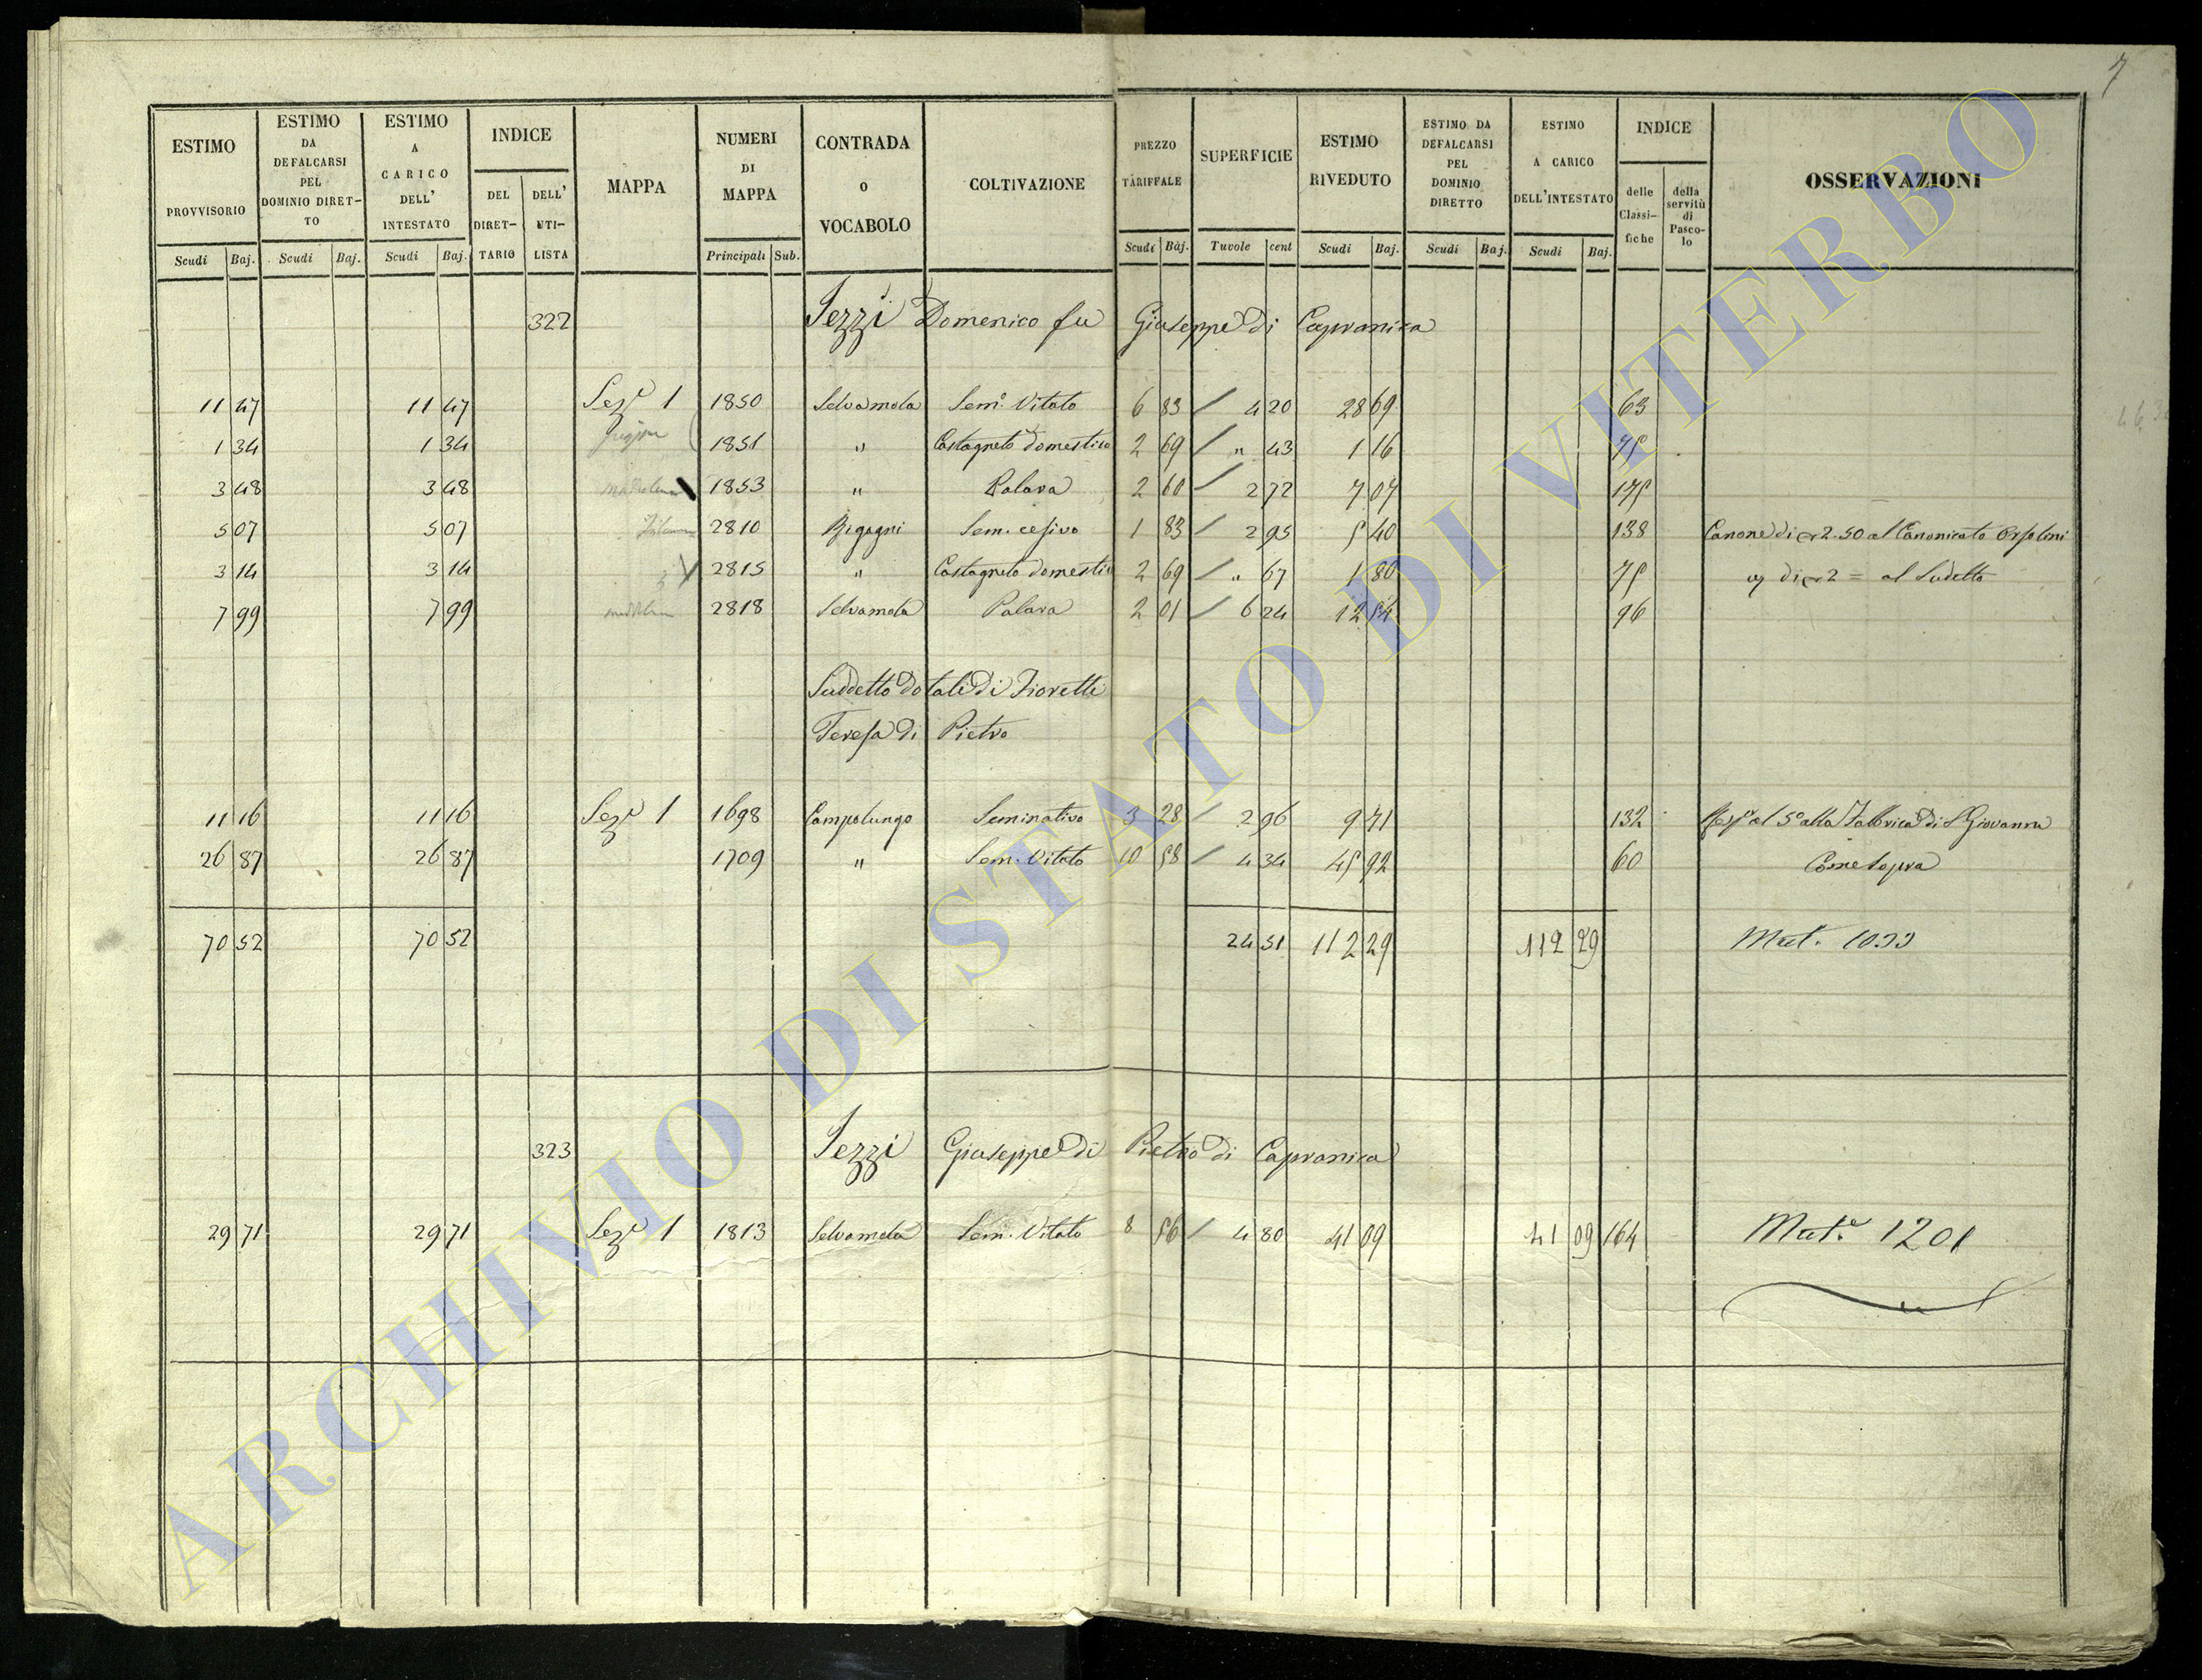 7
ESTIMO PROVVISORIO | ESTIMO DA DEFALCARSI PEL DOMINIO DIRET-TO | ESTIMO A CARICO DELL' INTESTATO | INDICE | MAPPA | NUMERI DI MAPPA | CONTRADA O VOCABOLO | COLTIVAZIONE | PREZZO TARIFFALE | SUPERFICIE | ESTIMO RIVEDUTO | ESTIMO DA DEFALCARSI PEL DOMINIO DIRETTO | ESTIMO A CARICO DELL'INTESTATO | INDICE | OSSERVAZIONI
DEL DIRET-TARIO | DELL' UTI-LISTA | delle Classi-fiche | della servitù di Pasco-lo
Scudi | Baj. | Scudi | Baj. | Scudi | Baj. | Principali | Sub. | Scudi | Baj. | Tavole | cent | Scudi | Baj. | Scudi | Baj. | Scudi | Baj.
322 Jezzi Domenico fu Giuseppe di Capranica
11 47 | 11 47 | Seze 1 | 1850 | Selvamola | Sem. Vitato | 6 83 | 4 20 | 28 69 | 63
1 34 | 1 34 | 1851 | " | Castagneto domestico | 2 69 | " 43 | 1 16 | 75
3 48 | 3 48 | 1853 | " | Palara | 2 60 | 2 72 | 7 07 | 175
5 07 | 5 07 | 2810 | Sem. cesivo | 1 83 | 2 95 | 5 40 | 138 | Canone di 2.50 al Canonicato Orsolini
3 14 | 3 14 | 2815 | " | Castagneto domestico | 2 69 | " 67 | 1 80 | 75 | di 2 = al Sudetto
7 99 | 7 99 | 2818 | Selvamola | Palara | 2 01 | 6 24 | 12 54 | 96
Suddetto dotali di Fioretti
Teresa di Pietro
11 16 | 11 16 | Seze 1 | 1698 | Campolungo | Seminativo | 3 28 | 2 96 | 9 71 | 132 | al 5o alla Fabbrica di S Giovanni
26 87 | 26 87 | 1709 | " | Sem. Vitato | 10 58 | 4 34 | 45 92 | 60 | Come sopra
70 52 | 70 52 | 24 51 | 112 29 | 112 29 | Mat. 1033
323 Jezzi Giuseppe di Pietro di Capranica
29 71 | 29 71 | Seze 1 | 1813 | Selvamola | Sem. Vitato | 8 56 | 4 80 | 41 09 | 41 09 | 164 | Mate 1201
ARCHIVIO DI STATO DI VITERBO